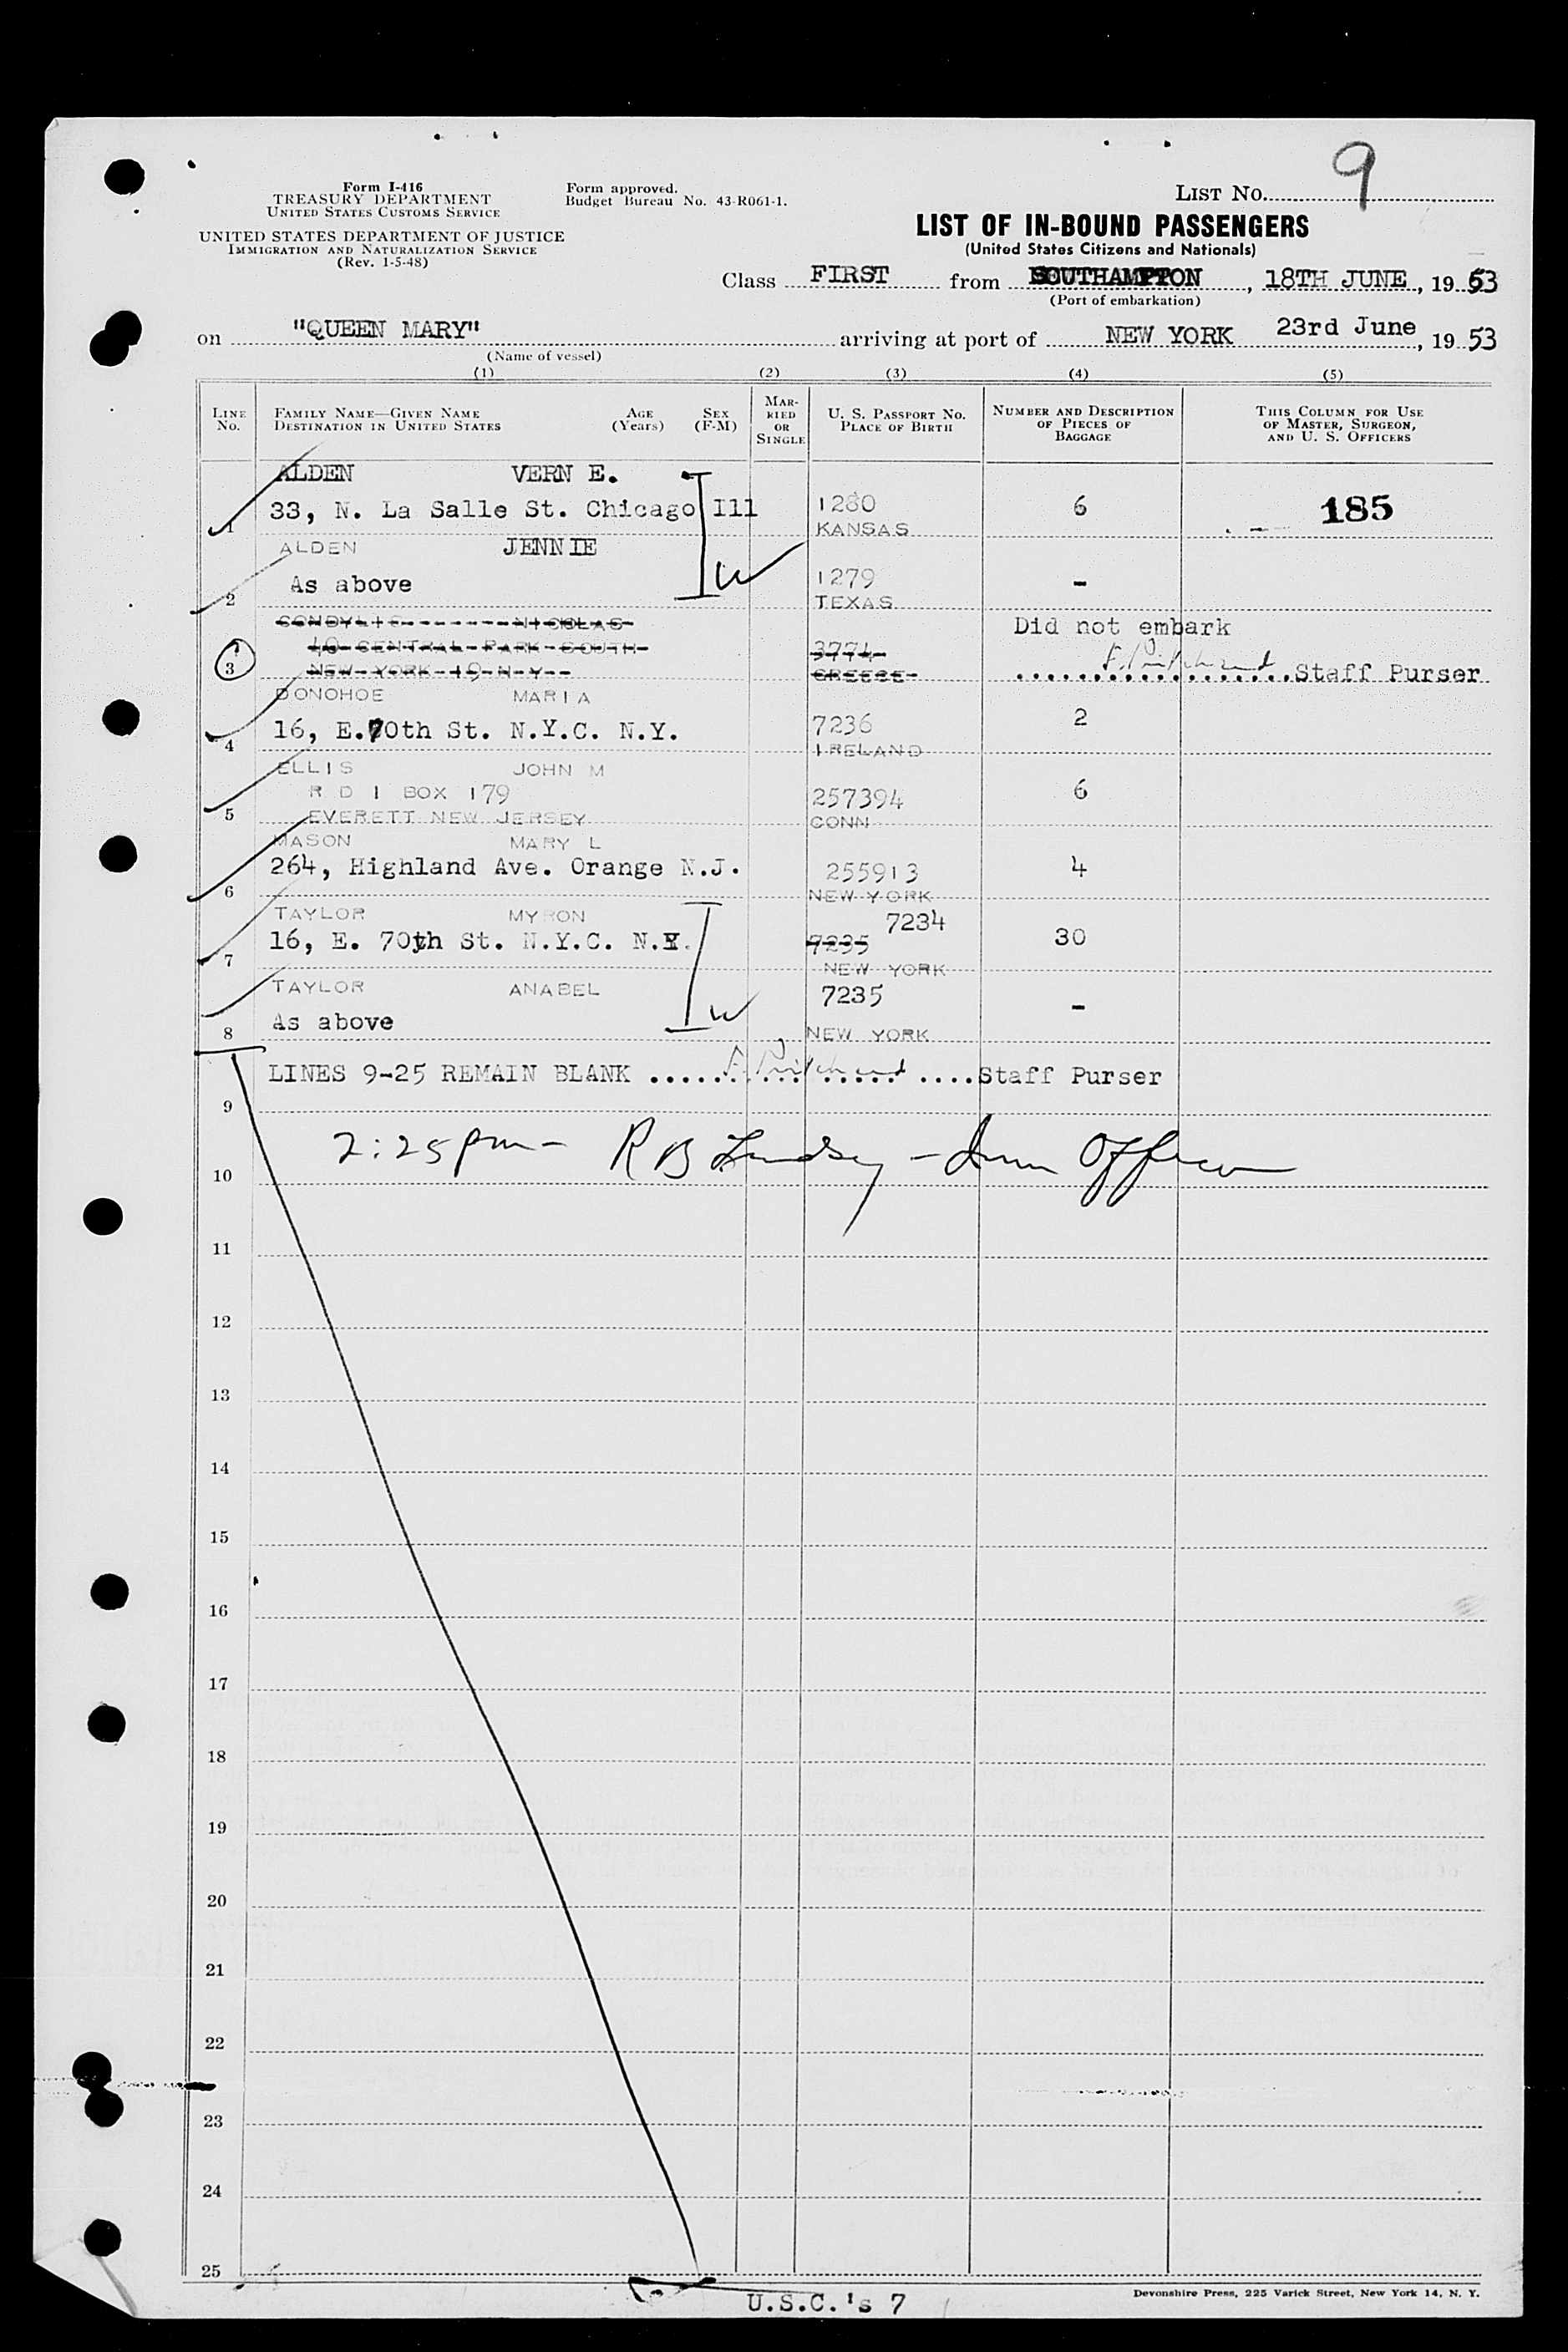 9
Form I-416
TREASURY DEPARTMENT
UNITED STATES CUSTOMS SERVICE
UNITED STATES DEPARTMENT OF JUSTICE
IMMIGRATION AND NATURALIZATION SERVICE
(Rev. 1-5-48)
Form approved.
Budget Bureau No. 43-R061-1.
LIST NO.
LIST OF IN-BOUND PASSENGERS
(United States Citizens and Nationals)
Class FIRST from SOUTHAMPTON, 18TH JUNE, 1953
(Port of embarkation)
on "QUEEN MARY" arriving at port of NEW YORK 23rd June, 1953
(Name of vessel)
(1) (2) (3) (4) (5)
LINE NO.
FAMILY NAME—GIVEN NAME
DESTINATION IN UNITED STATES
AGE (Years)
SEX (F-M)
MARRIED OR SINGLE
U. S. PASSPORT NO.
PLACE OF BIRTH
NUMBER AND DESCRIPTION OF PIECES OF BAGGAGE
THIS COLUMN FOR USE OF MASTER, SURGEON, AND U. S. OFFICERS
ALDEN VERN E.
1 33, N. La Salle St. Chicago Ill 1280 6 185
KANSAS
ALDEN JENNIE
As above 1279 -
2 TEXAS
CONDYLIS NICOLAS Did not embark
40 CENTRAL PARK SOUTH 3774
3 NEW YORK 19 N Y GREECE F. Pritchard Staff Purser
DONOHOE MARIA
4 16, E.70th St. N.Y.C. N.Y. 7236 2
IRELAND
ELLIS JOHN M
R D 1 BOX 179 257394 6
5 EVERETT NEW JERSEY CONN
MASON MARY L
264, Highland Ave. Orange N.J. 255913 4
6 NEW YORK
TAYLOR MYRON 7234
16, E. 70th St. N.Y.C. N.Y. 7235 30
7 NEW YORK
TAYLOR ANABEL 7235
As above -
8 NEW YORK
LINES 9-25 REMAIN BLANK F. Pritchard Staff Purser
9
2:25 pm - R B Lindsey - Imm Officer
10
11
12
13
14
15
16
17
18
19
20
21
22
23
24
25
U.S.C.'s 7
Devonshire Press, 225 Varick Street, New York 14, N. Y.